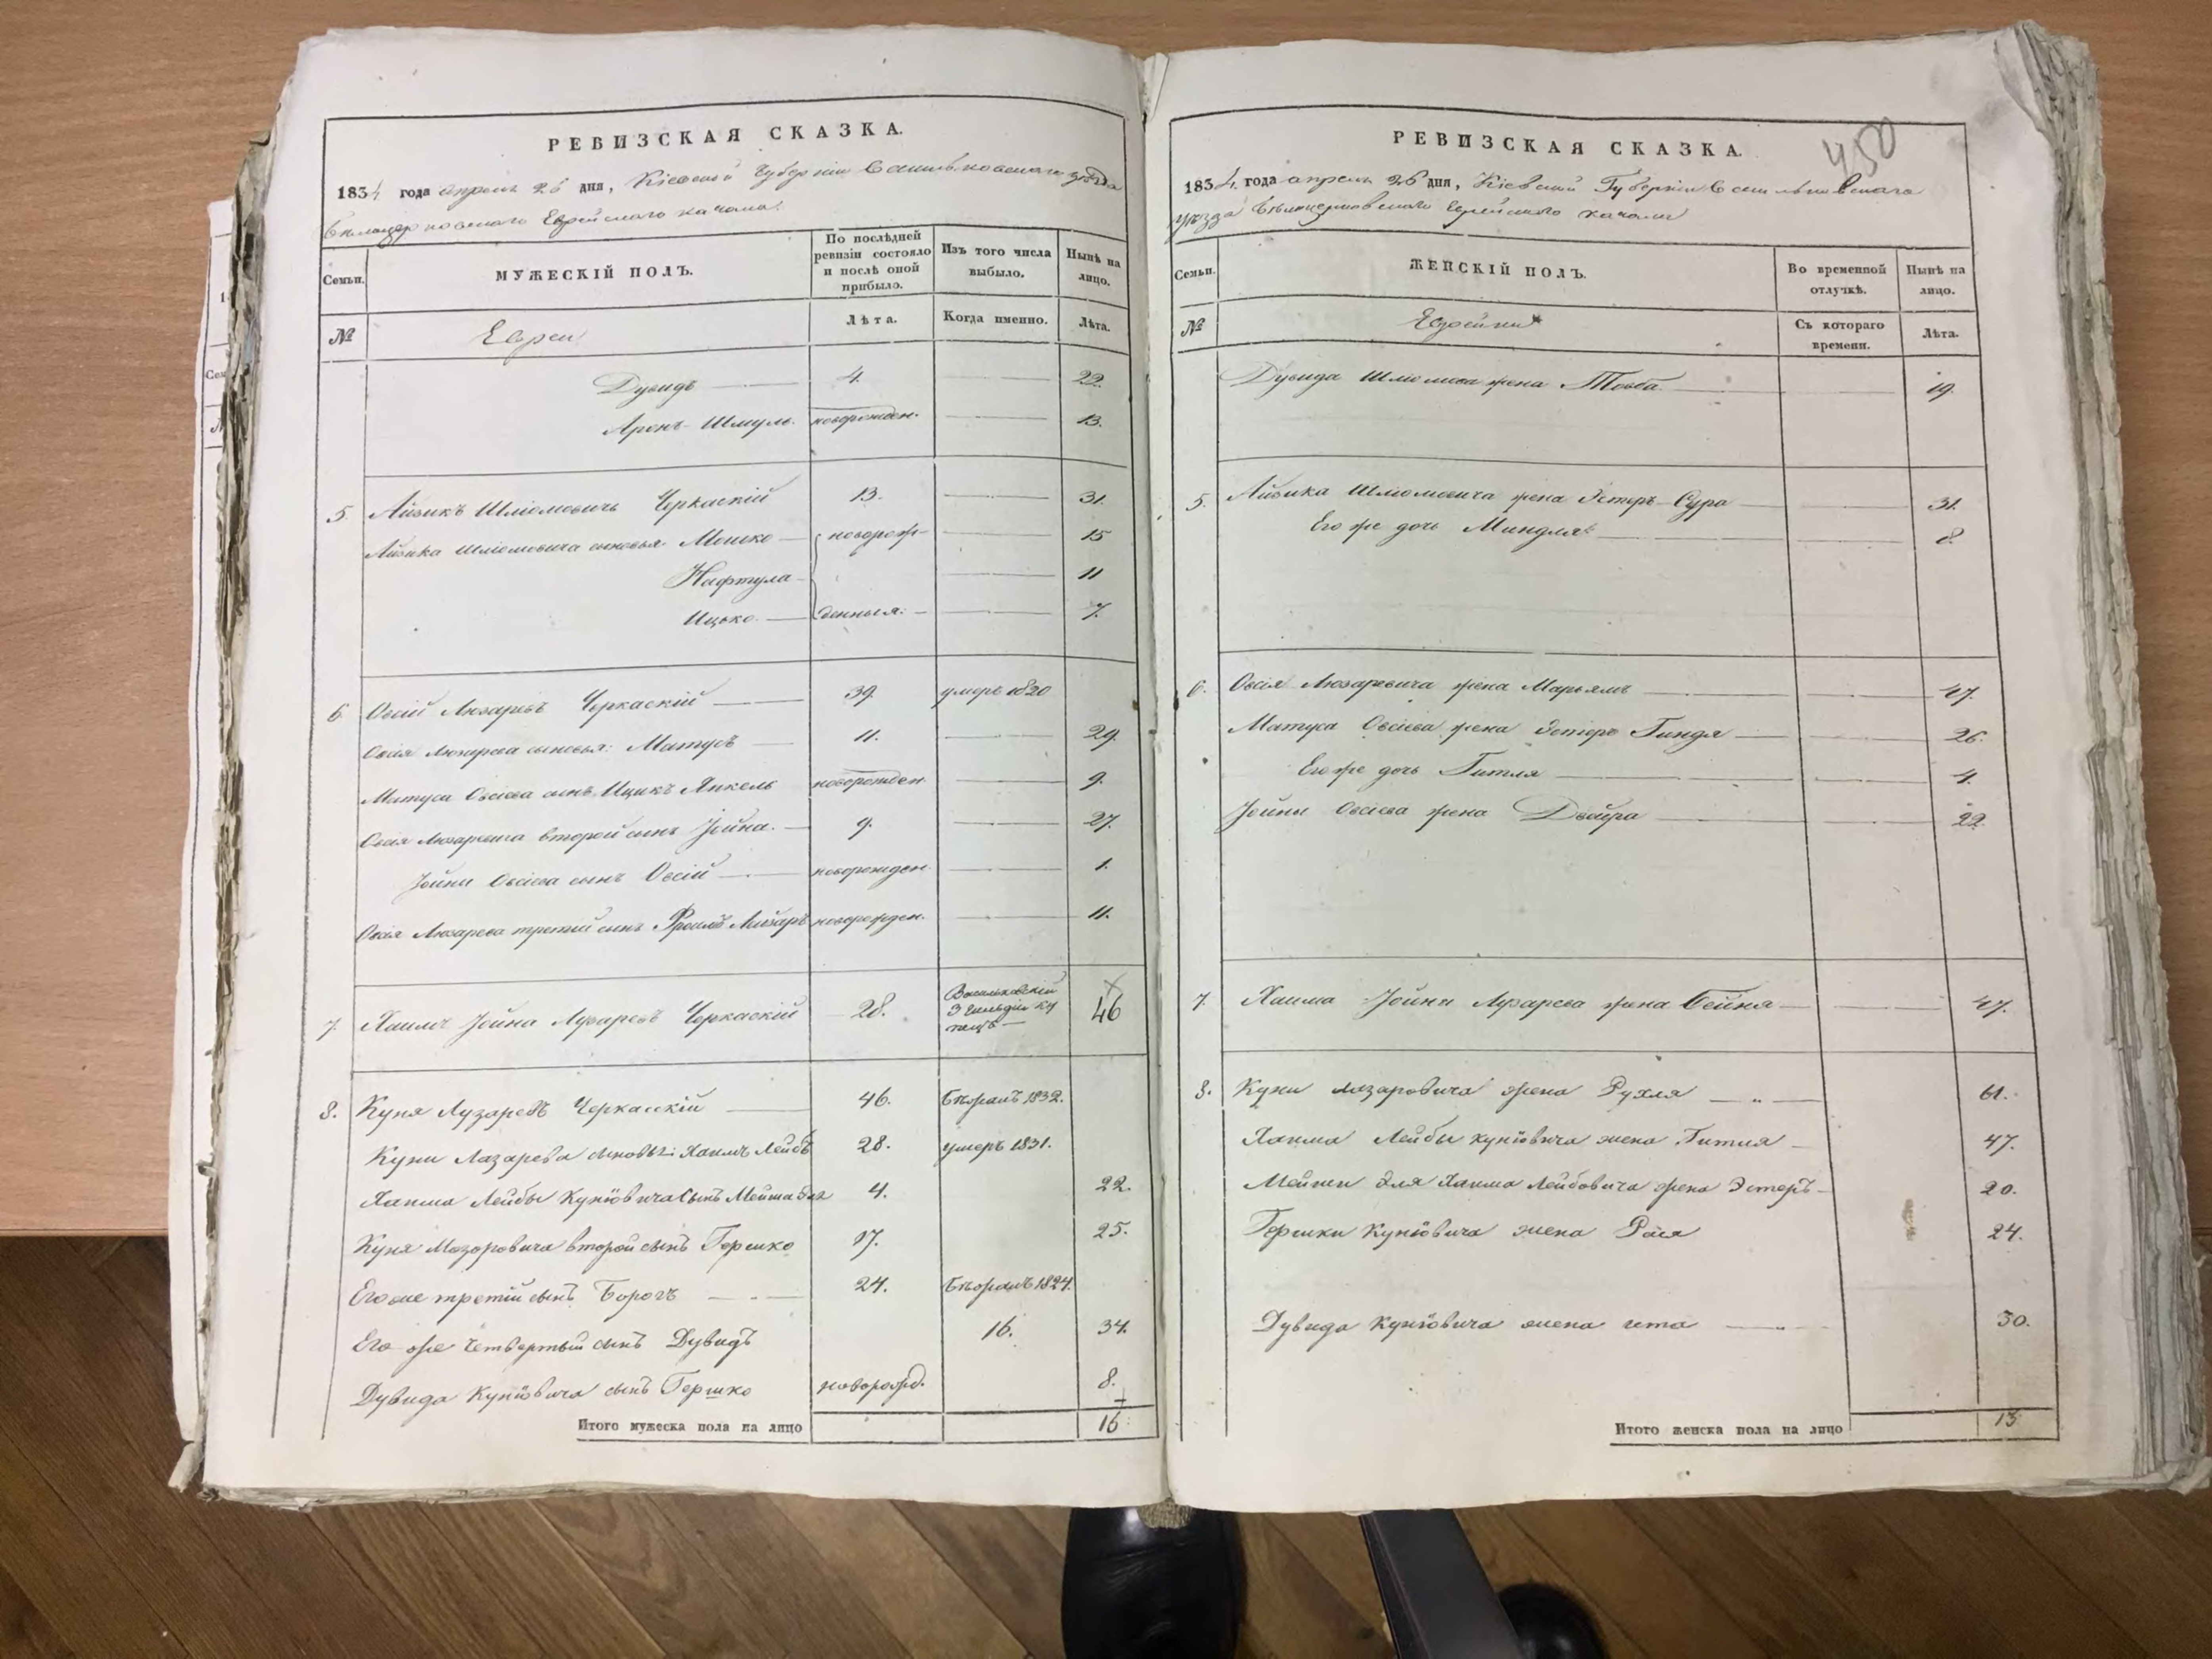 РЕВИЗСКАЯ СКАЗКА.
1834 года апреля 25 дня, Кіевской Губерніи Васильковскаго уѣзда
Бѣлоцерковскаго Еврейскаго кагала.
Семьи. МУЖЕСКІЙ ПОЛЪ. По послѣдней ревизіи состояло и послѣ оной прибыло. Изъ того числа выбыло. Нынѣ на лицо.
№ Евреи Лѣта. Когда именно. Лѣта.
Дувидъ 4. 22.
Аронъ-Шмуль. новорожден. 13.
5. Айзикъ Шліомовичъ Черкаскій 13. 31.
Айзика Шліомовича сыновья Мошко новорож- 15
Нафтула 11
Ицько денныя. 7.
6 Овсій Люзаревъ Черкаскій 39. умеръ 1820
Овсія Люзарева сыновья: Матусъ 11. 29.
Матуса Овсіева сынъ Ицикъ Янкель новорожден. 9.
Овсія Люзаревича второй сынъ Іойна. 9. 27.
Іойны Овсіева сынъ Овсій новорожден. 1.
Овсія Люзарева третій сынъ Фроимъ Лайзаръ новорожден. 11.
7. Хаимъ Іойна Лузаревъ Черкаскій 28. Васильковскій 3 гильдіи купецъ 46
8. Куня Лузаревъ Черкаскій 46. бѣжалъ 1832.
Куни Лазарева сыновья: Хаимъ Лейбъ 28. умеръ 1831.
Хаима Лейбы Куніовича сынъ Мейша Эля 4. 22.
Куня Лазоровича второй сынъ Гершко 17. 25.
Его же третій сынъ Борохъ 24. бѣжалъ 1824.
Его же четвертый сынъ Дувидъ 16. 34.
Дувида Куніовича сынъ Гершко новорожд. 8.
Итого мужеска пола на лицо 16
450
РЕВИЗСКАЯ СКАЗКА.
1834. года апреля 25 дня, Кіевской Губерніи Васильковскаго
уѣзда Бѣлоцерковскаго Еврейскаго кагала
Семьи. ЖЕНСКІЙ ПОЛЪ. Во временной отлучкѣ. Нынѣ на лицо.
№ Еврейки Съ котораго времени. Лѣта.
Дувида Шліомова жена Товба 19.
5. Айзика Шліомовича жена Эстеръ-Сура 31.
Его же дочь Миндля 8.
6. Овсія Люзаревича жена Марьямъ 47.
Матуса Овсіева жена Эстеръ Гиндя 26.
Его же дочь Гитля 4.
Іойны Овсіева жена Двойра 22.
7. Хаима Іойны Лузарева жена Бейня 47.
8. Куни Лазаровича жена Рухля 61.
Хаима Лейбы Куніовича жена Гитля 47.
Мейши Эля Хаима Лейбовича жена Эстеръ 20.
Гершки Куніовича жена Рася 24.
Дувида Куніовича жена Гета 30.
Итого женска пола на лицо 13